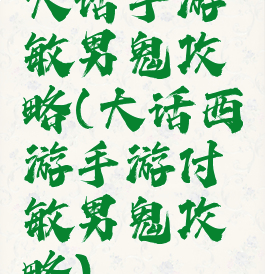 大话手游
敏男鬼攻
略(大话西
游手游付
敏男鬼攻
略)